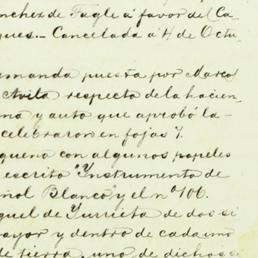 nchez de Tagle á favor de (Ca
ques.— Cancelada á 4 de Octu.
emanda puesta por Marco
Avila respecto de la hacien
ma y auto que aprobó la—
celebraron en fojas 7.
queno con algunos papeles
escrito "Instrumento de
ñol Blanco" y el nº 100.
quel de Yurrieta de dos si
ayor y dentro de cada uno
de tierra, uno de dichos si